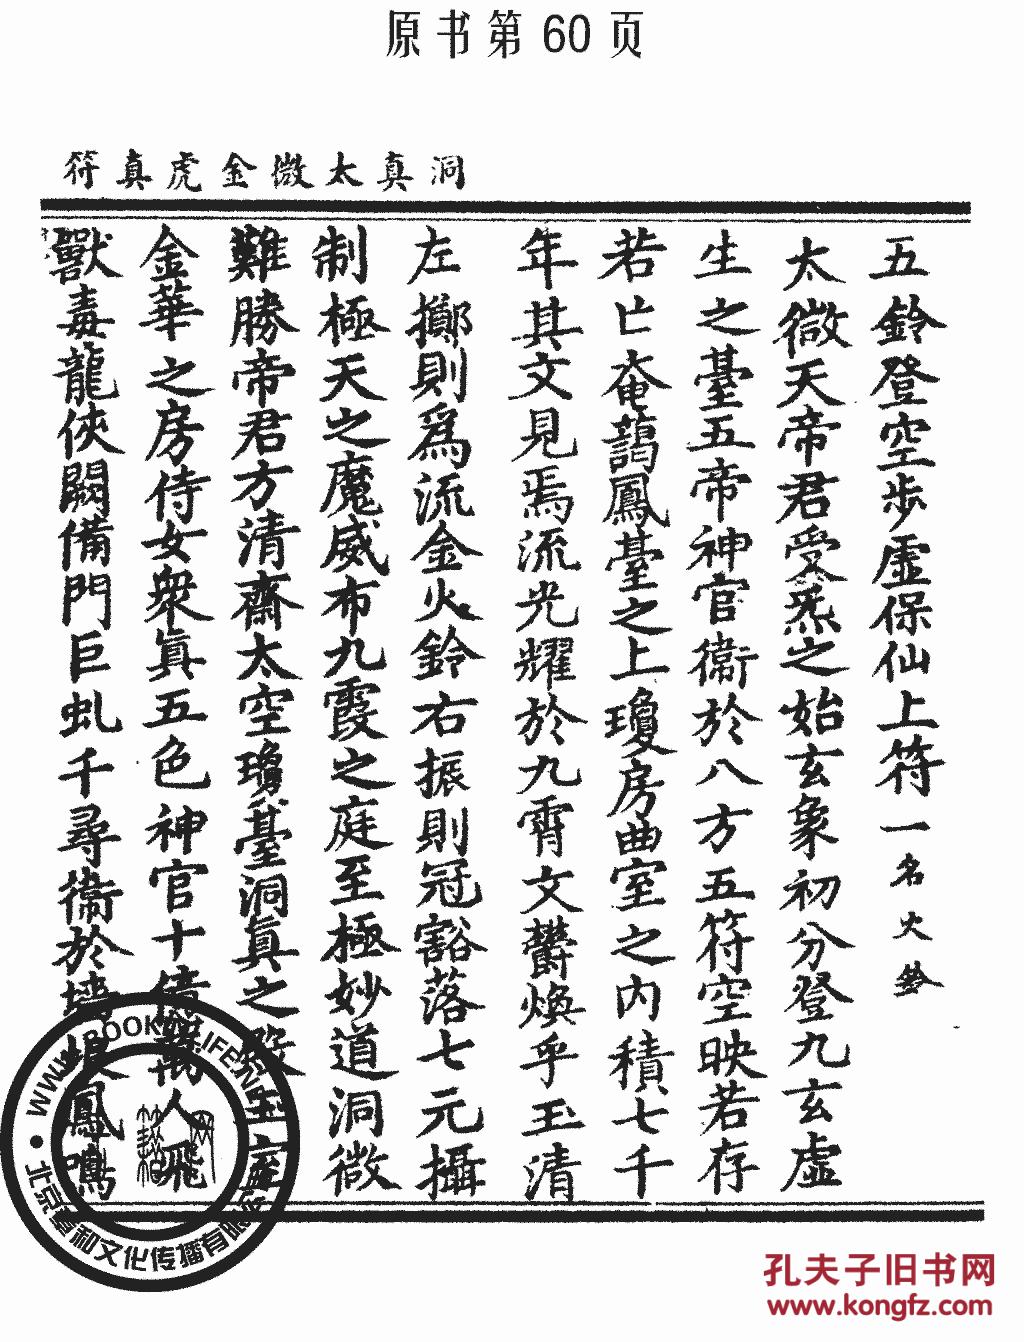 原书第60页
洞真太微金虎真符
五鈴登空步虛保仙上符一名火鈴
太微天帝君受炁之始玄象初分登九玄虛
生之臺五帝神官衛於八方五符空映若存
若亡奄藹鳳臺之上瓊房曲室之内積七千
年其文見焉流光耀於九霄文欝煥乎玉清
左擲則為流金火鈴右振則冠豁落七元攝
制極天之魔威布九霞之庭至極妙道洞微
難勝帝君方清齋太空瓊臺洞真之殿玉
金華之房侍女眾真五色神官十億萬人飛
獸毒龍俠闕備門巨虬千尋衛於墙 鳳鳴
WWW.BOOKLIFE
北京 和文化传播有限公司
孔夫子旧书网
www.kongfz.com